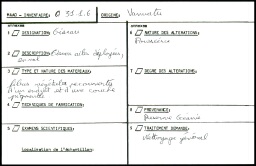 MANO - INVENTAIRE: O 31.1.6 ORIGINE: Vanuatu
1 DESIGNATION: Oiseau
2 DESCRIPTION: Oiseau ailes déployées,
en vol
3 TYPE ET NATURE DES MATERIAUX:
fibres végétales recouvertes
d'un enduit et d'une couche
pigmentée
4 TECHNIQUES DE FABRICATION:
5 EXAMENS SCIENTIFIQUES:
Localisation de l'échantillon:
6 NATURE DES ALTERATIONS:
Poussières
7 DEGRE DES ALTERATIONS:
8 PROVENANCE:
Réserve Océanie
9 TRAITEMENT DEMANDE:
Nettoyage général